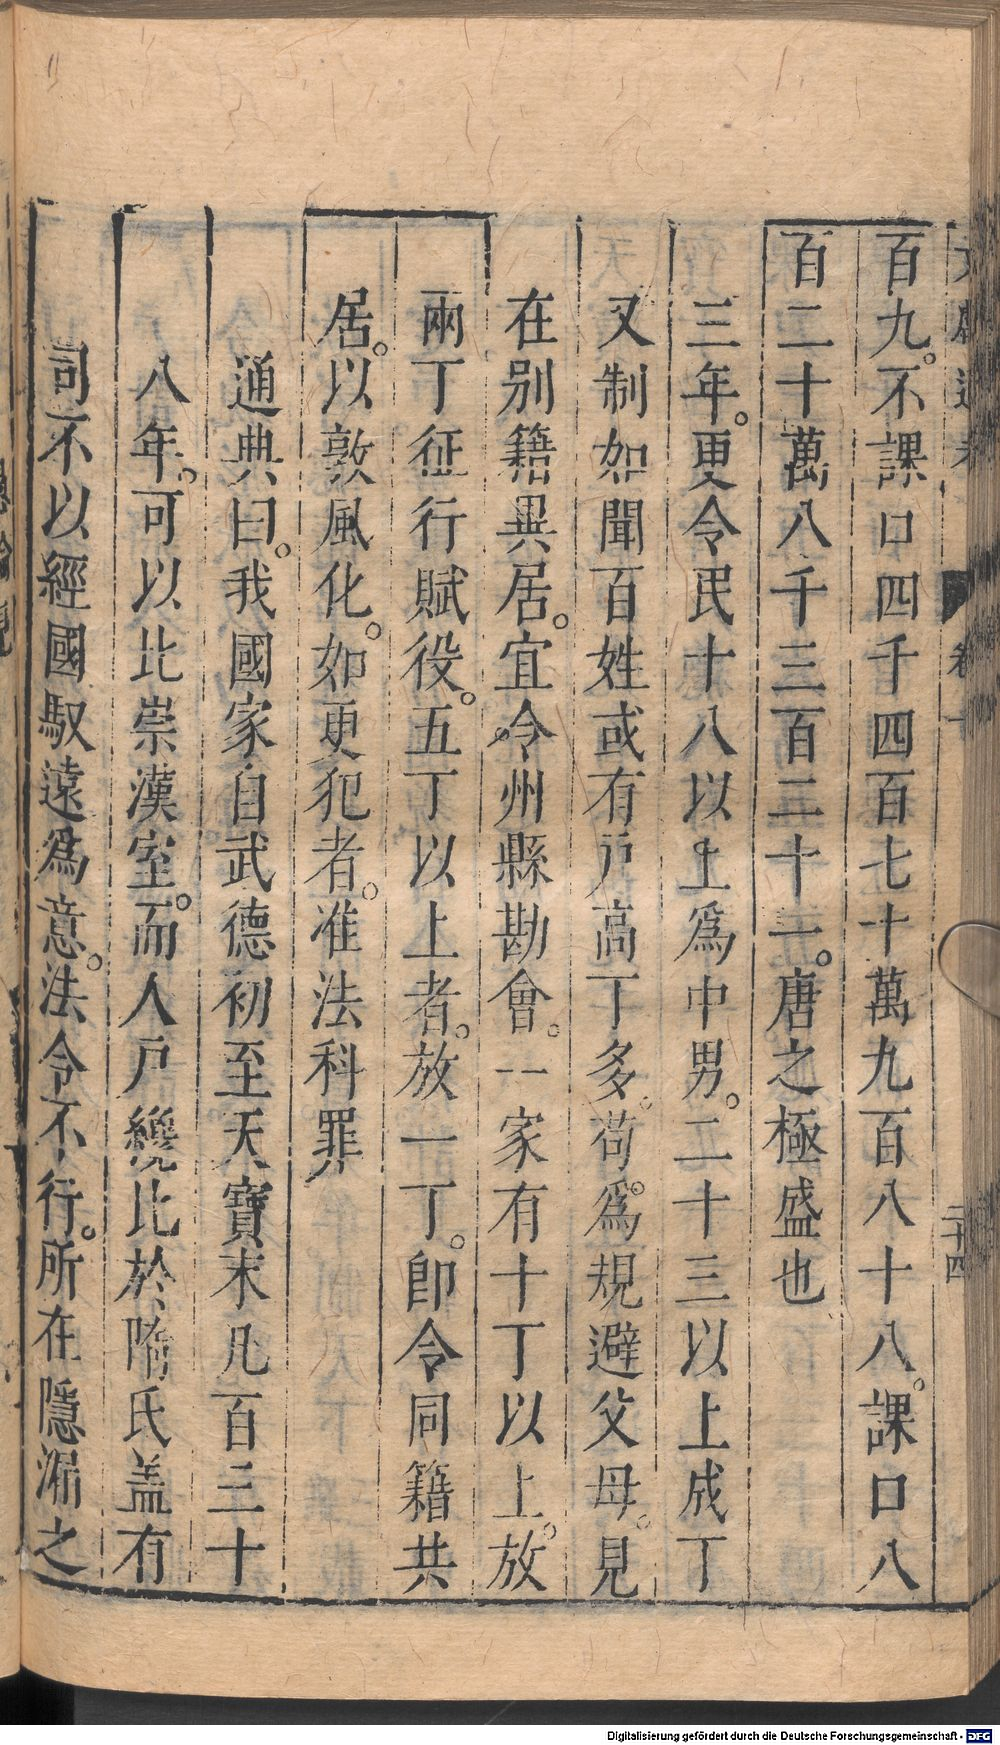 百九。不課口四千四百七十萬九百八十八。課口八
百二十萬八千三百二十一。唐之極盛也
三年。更令民十八以上爲中男。二十三以上成丁
又制如聞百姓或有戶高丁多。苟爲規避父母。見
在別籍異居。宜令州縣勘會。一家有十丁以上。放
兩丁征行賦役。五丁以上者。放一丁。卽令同籍共
居。以敦風化。如更犯者。准法科罪
通典曰。我國家自武德初至天寶末凡百三十
八年。可以比崇漢室。而人戶纔比於隋氏盖有
司不以經國馭遠爲意。法令不行。所在隱漏之
二十四
Digitalisierung gefördert durch die Deutsche Forschungsgemeinschaft - DFG